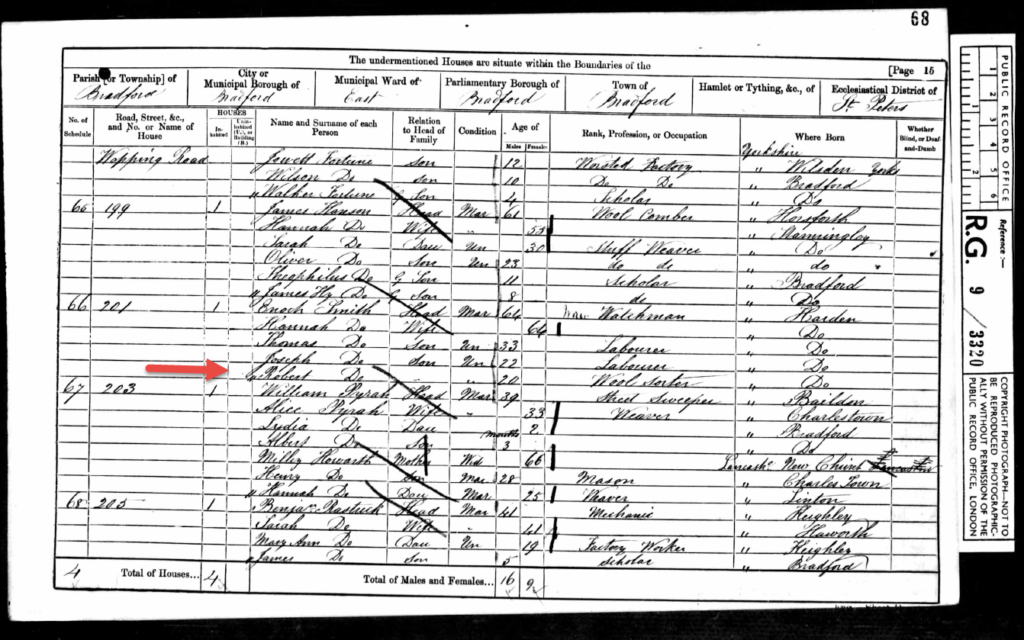 68
The undermentioned Houses are situate within the Boundaries of the
[Page 15
Parish [or Township] of Bradford
City or Municipal Borough of Bradford
Municipal Ward of East
Parliamentary Borough of Bradford
Town of Bradford
Hamlet or Tything, &c., of
Ecclesiastical District of St Peters
No. of Schedule
Road, Street, &c., and No. or Name of House
HOUSES
Inhabited
Uninhabited (U.), or Building (B.)
Name and Surname of each Person
Relation to Head of Family
Condition
Age of
Males
Females
Rank, Profession, or Occupation
Where Born
Whether Blind, or Deaf-and-Dumb
Yorkshire
Wapping Road Jowett Fortune son 12 Worsted Factory " Wilsden Yorks
Wilson Do son 10 Do Do " Bradford
Walker Fortune Son 4 Scholar " Do
199 1 James Hanson Head Mar 61 Wool Comber " Horsforth
Hannah Do Wife " 55 " Stanningley
Sarah Do Dau Un 30 Stuff Weaver " Do
Oliver Do Son Un 23 do do " do
Theophilus Do G Son 11 Scholar " Bradford
James Hy Do G Son 8 do " Do
66 201 1 Enoch Smith Head Mar 64 Watchman " Harden
Hannah Do Wife 64 " Do
Thomas Do Son Un 33 Labourer " Do
Joseph Do son Un 22 Labourer " Do
Robert Do " " 20 Wool Sorter " Do
67 203 1 William Pyrah Head Mar 39 Street Sweeper " Baildon
Alice Pyrah Wife " 33 Weaver " Charlestown
Lydia Do Dau 2 " Bradford
Albert Do Son months 3 " Do
Milley Howarth Mother Wid 66 Lancash New Church
Henry Do son Mar 28 Mason " Charles Town
Hannah Do Dau Mar 25 Weaver " Linton
68 205 1 Benja Rastrick Head Mar 41 Mechanic " Keighley
Sarah Do Wife " 41 " Haworth
Mary Ann Do Dau Un 19 Factory Worker " Keighley
James Do Son 5 Scholar " Bradford
4 Total of Houses... 4 Total of Males and Females... 16 9
PUBLIC RECORD OFFICE
1 2 3 4 5 6
1 2
Reference:-
R.G. 9 / 3320
COPYRIGHT PHOTOGRAPH—NOT TO BE REPRODUCED PHOTOGRAPHICALLY WITHOUT PERMISSION OF THE PUBLIC RECORD OFFICE, LONDON